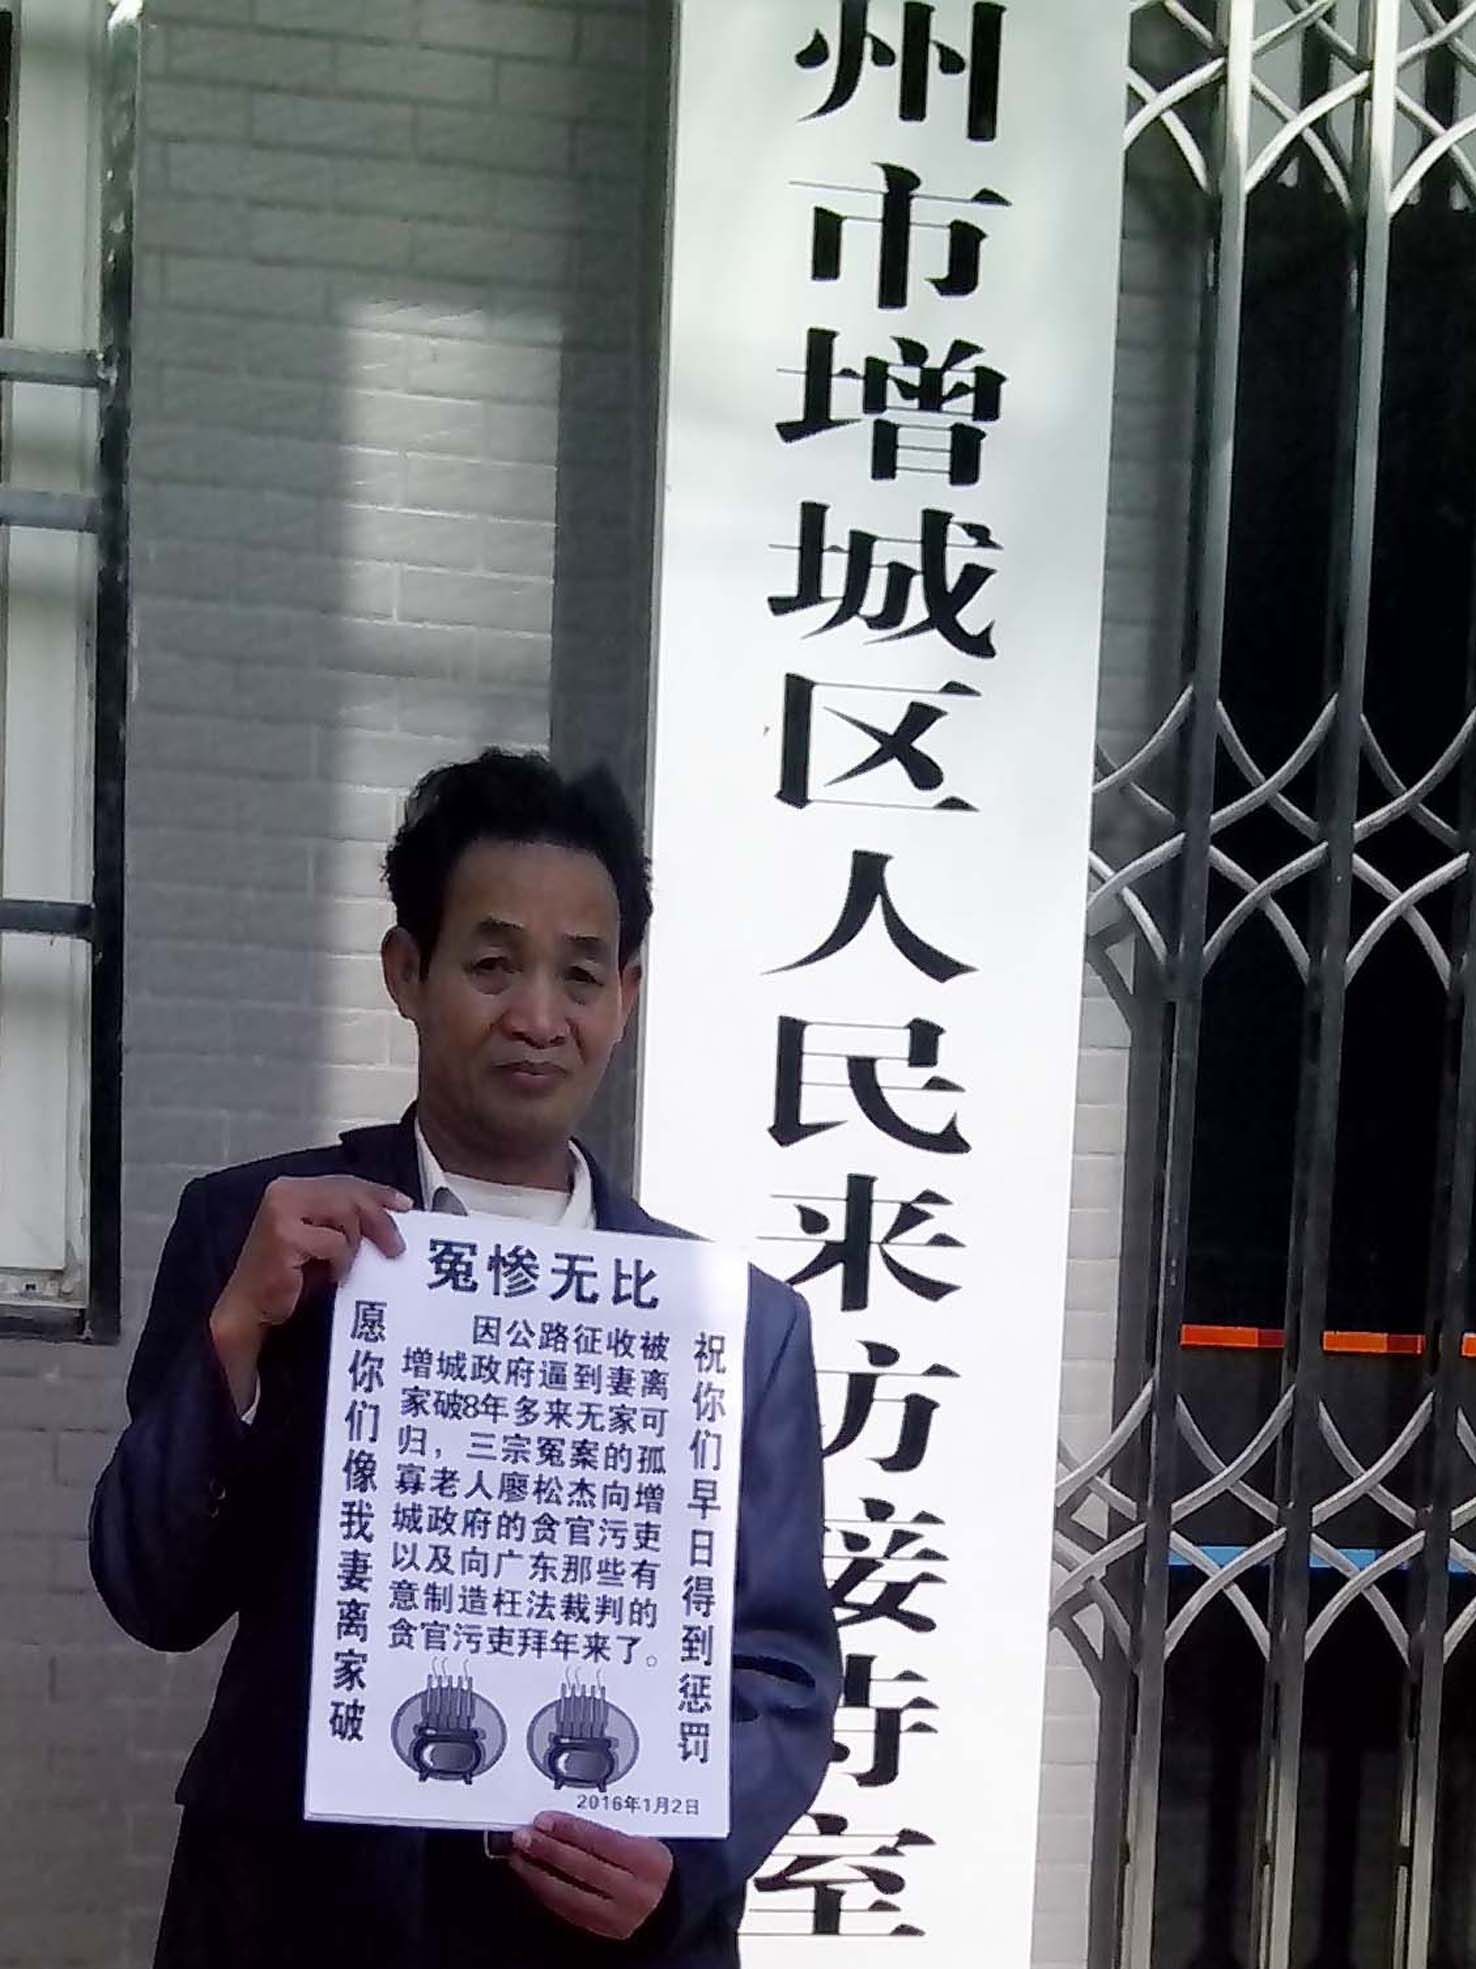 州市增城区人民来访接待室
冤惨无比
愿你们像我妻离家破
因公路征收被
增城政府逼到妻离
家破8年多来无家可
归，三宗冤案的孤
寡老人廖松杰向增
城政府的贪官污吏
以及向广东那些有
意制造枉法裁判的
贪官污吏拜年来了。
祝你们早日得到惩罚
2016年1月2日